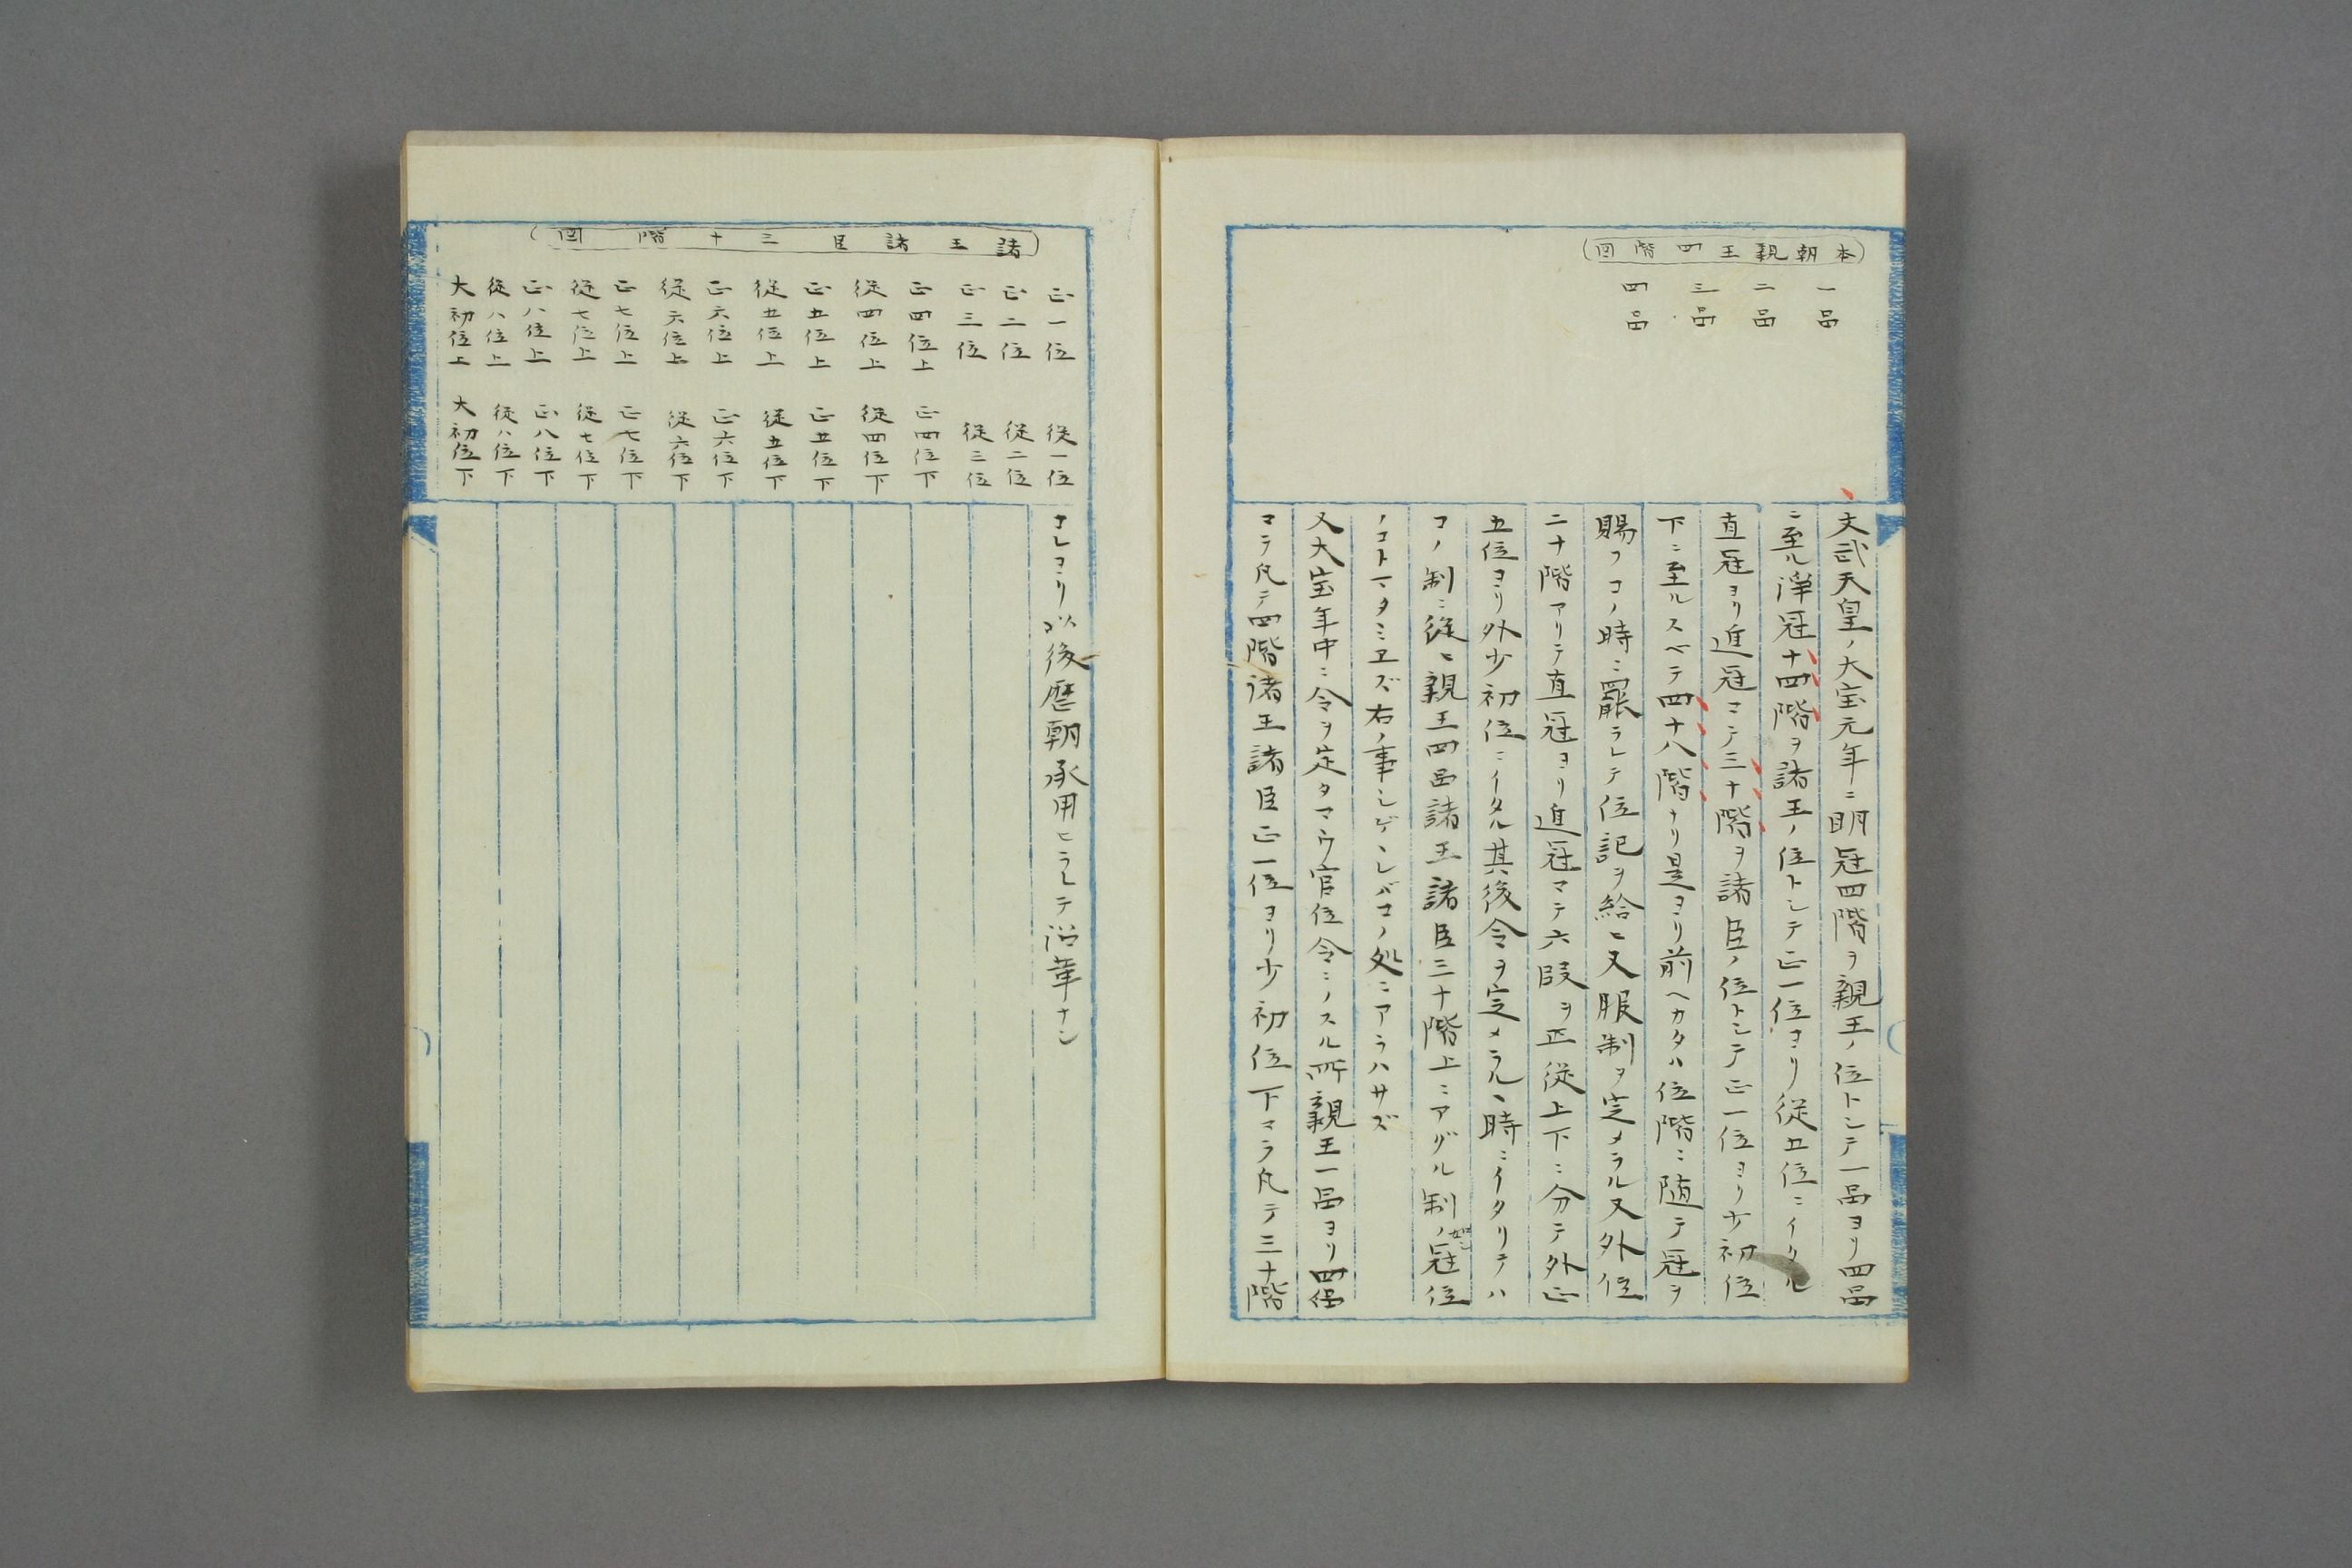 本朝親王四階図
一品
二品
三品
四品
文武天皇ノ大宝元年ニ明冠四階ヲ親王ノ位トシテ一品ヨリ四品
ニ至ル浄冠十四階ヲ諸王ノ位トシテ正一位ヨリ従五位ニイタル
直冠ヨリ進冠マテ三十階ヲ諸臣ノ位トシテ正一位ヨリ少初位
下ニ至ルスベテ四十八階ナリ是ヨリ前ヘカタハ位階ニ随テ冠ヲ
賜フコノ時ニ罷ラレテ位記ヲ給ヒ又服制ヲ定メラル又外位
二十階アリテ直冠ヨリ進冠マテ六段ヲ正従上下ニ分テ外正
五位ヨリ外少初位ニイタル其後令ヲ定メラルヽ時ニイタリテハ
コノ制ニ従ヒ親王四品諸王諸臣三十階上ニアグル制ノ如シ冠位
ノコトマタミヱズ右ノ事シゲヽレバコノ処ニアラハサズ
又大宝年中ニ令ヲ定タマウ官位令ニノスル所親王一品ヨリ四品
マテ凡テ四階諸王諸臣正一位ヨリ少初位下マテ凡テ三十階
諸王諸臣三十階図
正一位 従一位
正二位 従二位
正三位 従三位
正四位上 正四位下
従四位上 従四位下
正五位上 正五位下
従五位上 従五位下
正六位上 正六位下
従六位上 従六位下
正七位上 正七位下
従七位上 従七位下
正八位上 正八位下
従八位上 従八位下
大初位上 大初位下
コレヨリ以後歴朝承用ヒラレテ沿革ナシ